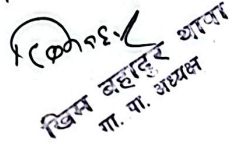 खिम बहादुर थापा
गा. पा. अध्यक्ष